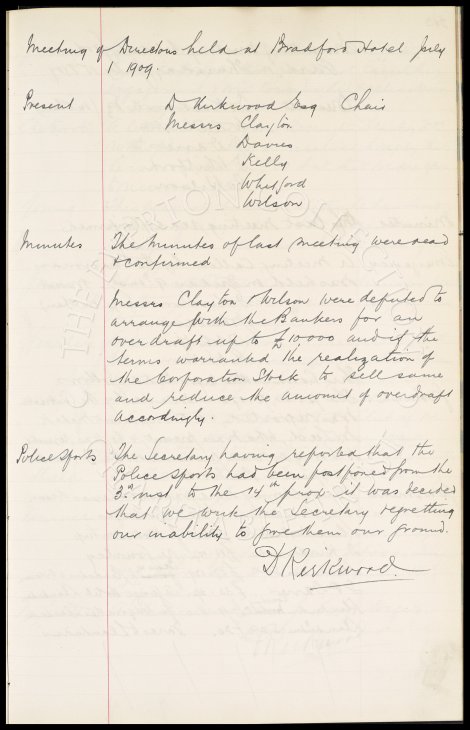 Meeting of Directors held at Bradford Hotel July
1 1909.
Present D Kirkwood Esq Chair
Messrs Clayton
Davies
Kelly
Whitford
Wilson
Minutes The Minutes of last meeting were read
& confirmed
Messrs Clayton & Wilson were deputed to
arrange with the Bankers for an
overdraft up to £10000 and if the
terms warranted the realization of
the Corporation Stock to sell same
and reduce the amount of overdraft
accordingly.
Police Sports The Secretary having reported that the
Police Sports had been postponed from the
3rd inst to the 14th prox it was decided
that we write the Secretary regretting
our inability to give them our ground.
D Kirkwood.